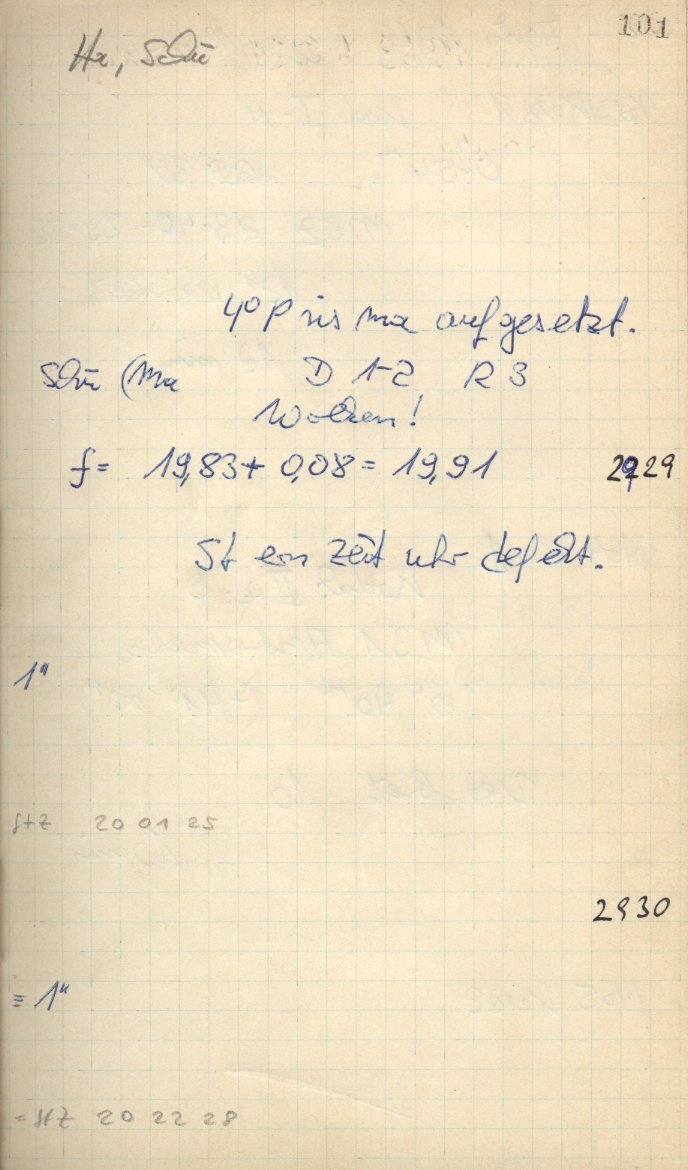 101
Ha, Schü
4° Prisma aufgesetzt.
Schü (Ma D 1-2 R 3
Wolken!
f = 19,83 + 0,08 = 19,91 2929
Sternzeituhr defekt.
1"
StZ 20 01 25
2930
= 1"
= StZ 20 22 28